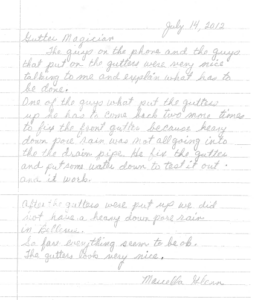 July 14, 2012
Gutter Magician
The guys on the phone and the guys
that put on the gutters were very nice
talking to me and explain what has to
be done.
One of the guys what put the gutters
up he has to come back two more times
to fix the front gutter because heavy
down pore rain was not all going into
the the drain pipe. He fix the gutter
and put some water down to test it out.
and it work.
After the gutters were put up we did
not have a heavy down pore rain
in
So far everything seem to be ok.
The gutters look very nice.
Marcella